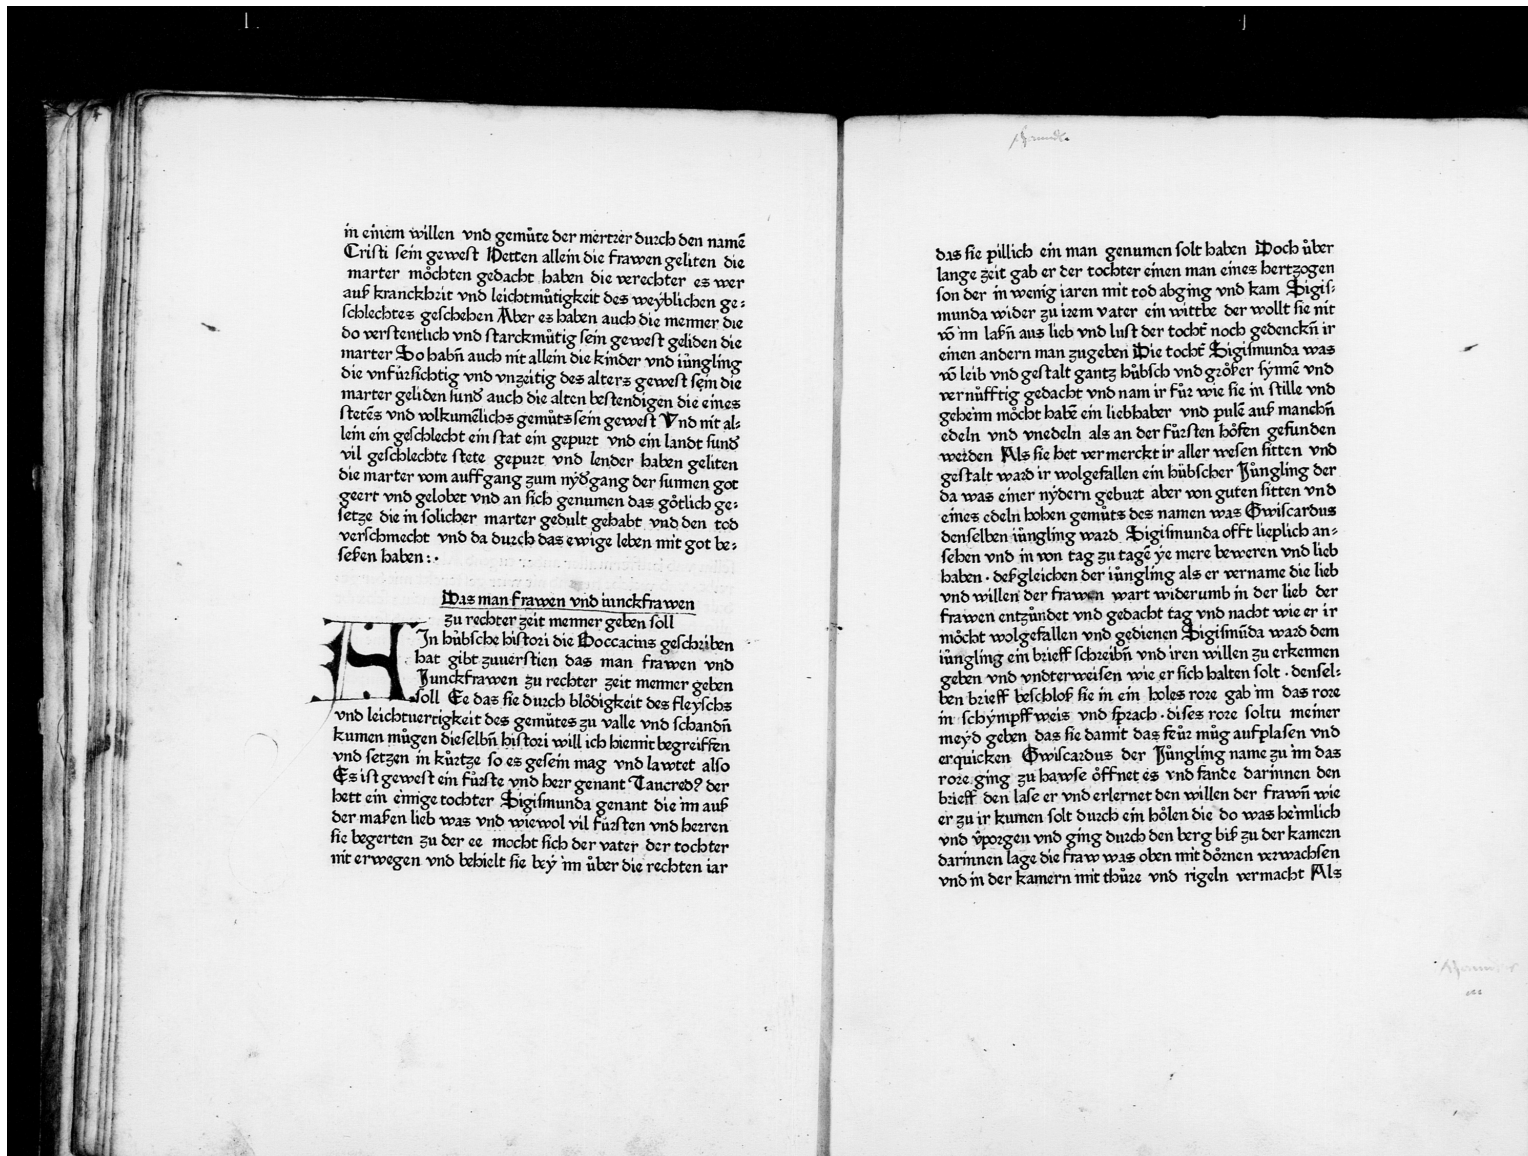 in einem willen vnd gemůte der mertrer durch den namē
Cristi sein gewest Hetten allein die frawen geliten die
marter möchten gedacht haben die verechter es wer
auß kranckheit vnd leichtmůtigkeit des weyblichen ge⸗
schlechtes geschehen Aber es haben auch die menner die
do verstentlich vnd starckmůtig sein gewest geliden die
marter So habn̄ auch nit allein die kinder vnd iůngling
die vnfürsichtig vnd vnzeitig des alters gewest sein die
marter geliden sund̄ auch die alten bestendigen die eines
stetēs vnd volkumēlichs gemůts sein gewest Vnd nit al⸗
lein ein geschlecht ein stat ein gepurt vnd ein landt sund̄
vil geschlechte stete gepurt vnd lender haben geliten
die marter vom auffgang zum nyd̄gang der sunnen got
geert vnd gelobet vnd an sich genumen das götlich ge⸗
setze die in solicher marter gedult gehabt vnd den tod
verschmecht vnd da durch das ewige leben mit got be⸗
seßen haben : ·
Das man frawen vnd iunckfrawen
zu rechter zeit menner geben soll
AIn hůbsche histori die Boccacius geschriben
hat gibt zuuerstien das man frawen vnd
Junckfrawen zu rechter zeit menner geben
soll Ee das sie durch blödigkeit des fleyschs
vnd leichtuertigkeit des gemůtes zu valle vnd schandn̄
kumen můgen dieselbn̄ histori will ich hiemit begreiffen
vnd setzen in kůrtze so es gesein mag vnd lawtet also
Es ist gewest ein fůrste vnd herr genant Tancredꝰ der
hett ein einige tochter Sigismunda genant die im auß
der maßen lieb was vnd wiewol vil fürsten vnd herren
sie begerten zu der ee mocht sich der vater der tochter
nit erwegen vnd behielt sie bey im ůber die rechten iar
das sie pillich ein man genumen solt haben Doch ůber
lange zeit gab er der tochter einen man eines hertzogen
son der in wenig iaren mit tod abging vnd kam Sigis⸗
munda wider zu irem vater ein wittbe der wollt sie nit
vō im laßn̄ aus lieb vnd lust der tocht̄ noch gedenckn̄ ir
einen andern man zugeben Die tocht̄ Sigismunda was
vō leib vnd gestalt gantz hůbsch vnd großer synnē vnd
vernůfftig gedacht vnd nam ir fůr wie sie in stille vnd
geheim möcht habē ein liebhaber vnd pulē auß manchn̄
edeln vnd vnedeln als an der fůrsten höfen gefunden
werden Als sie het vermerckt ir aller wesen sitten vnd
gestalt ward ir wolgefallen ein hübscher Jůngling der
da was einer nydern geburt aber von guten sitten vnd
eines edeln hohen gemůts des namen was Gwiscardus
denselben iůngling ward Sigismunda offt lieplich an⸗
sehen vnd in von tag zu tagē ye mere beweren vnd lieb
haben · deßgleichen der iůngling als er vername die lieb
vnd willen der frawen wart widerumb in der lieb der
frawen entzůndet vnd gedacht tag vnd nacht wie er ir
möcht wolgefallen vnd gedienen Sigismūda ward dem
iůngling ein brieff schreibn̄ vnd iren willen zu erkennen
geben vnd vndterweisen wie er sich halten solt · densel⸗
ben brieff beschloß sie in ein holes rore gab im das rore
in schympff weis vnd sprach · dises rore soltu meiner
meyd geben das sie damit das feůr můg aufplasen vnd
erquicken Gwiscardus der Jůngling name zu im das
rore ging zu hawse öffnet es vnd fande darinnen den
brieff den lase er vnd erlernet den willen der frawn̄ wie
er zu ir kumen solt durch ein hölen die do was heimlich
vnd v̄porgen vnd ging durch den berg biß zu der kamern
darinnen lage die fraw was oben mit dörnen verwachsen
vnd in der kamern mit thůre vnd rigeln vermacht Als